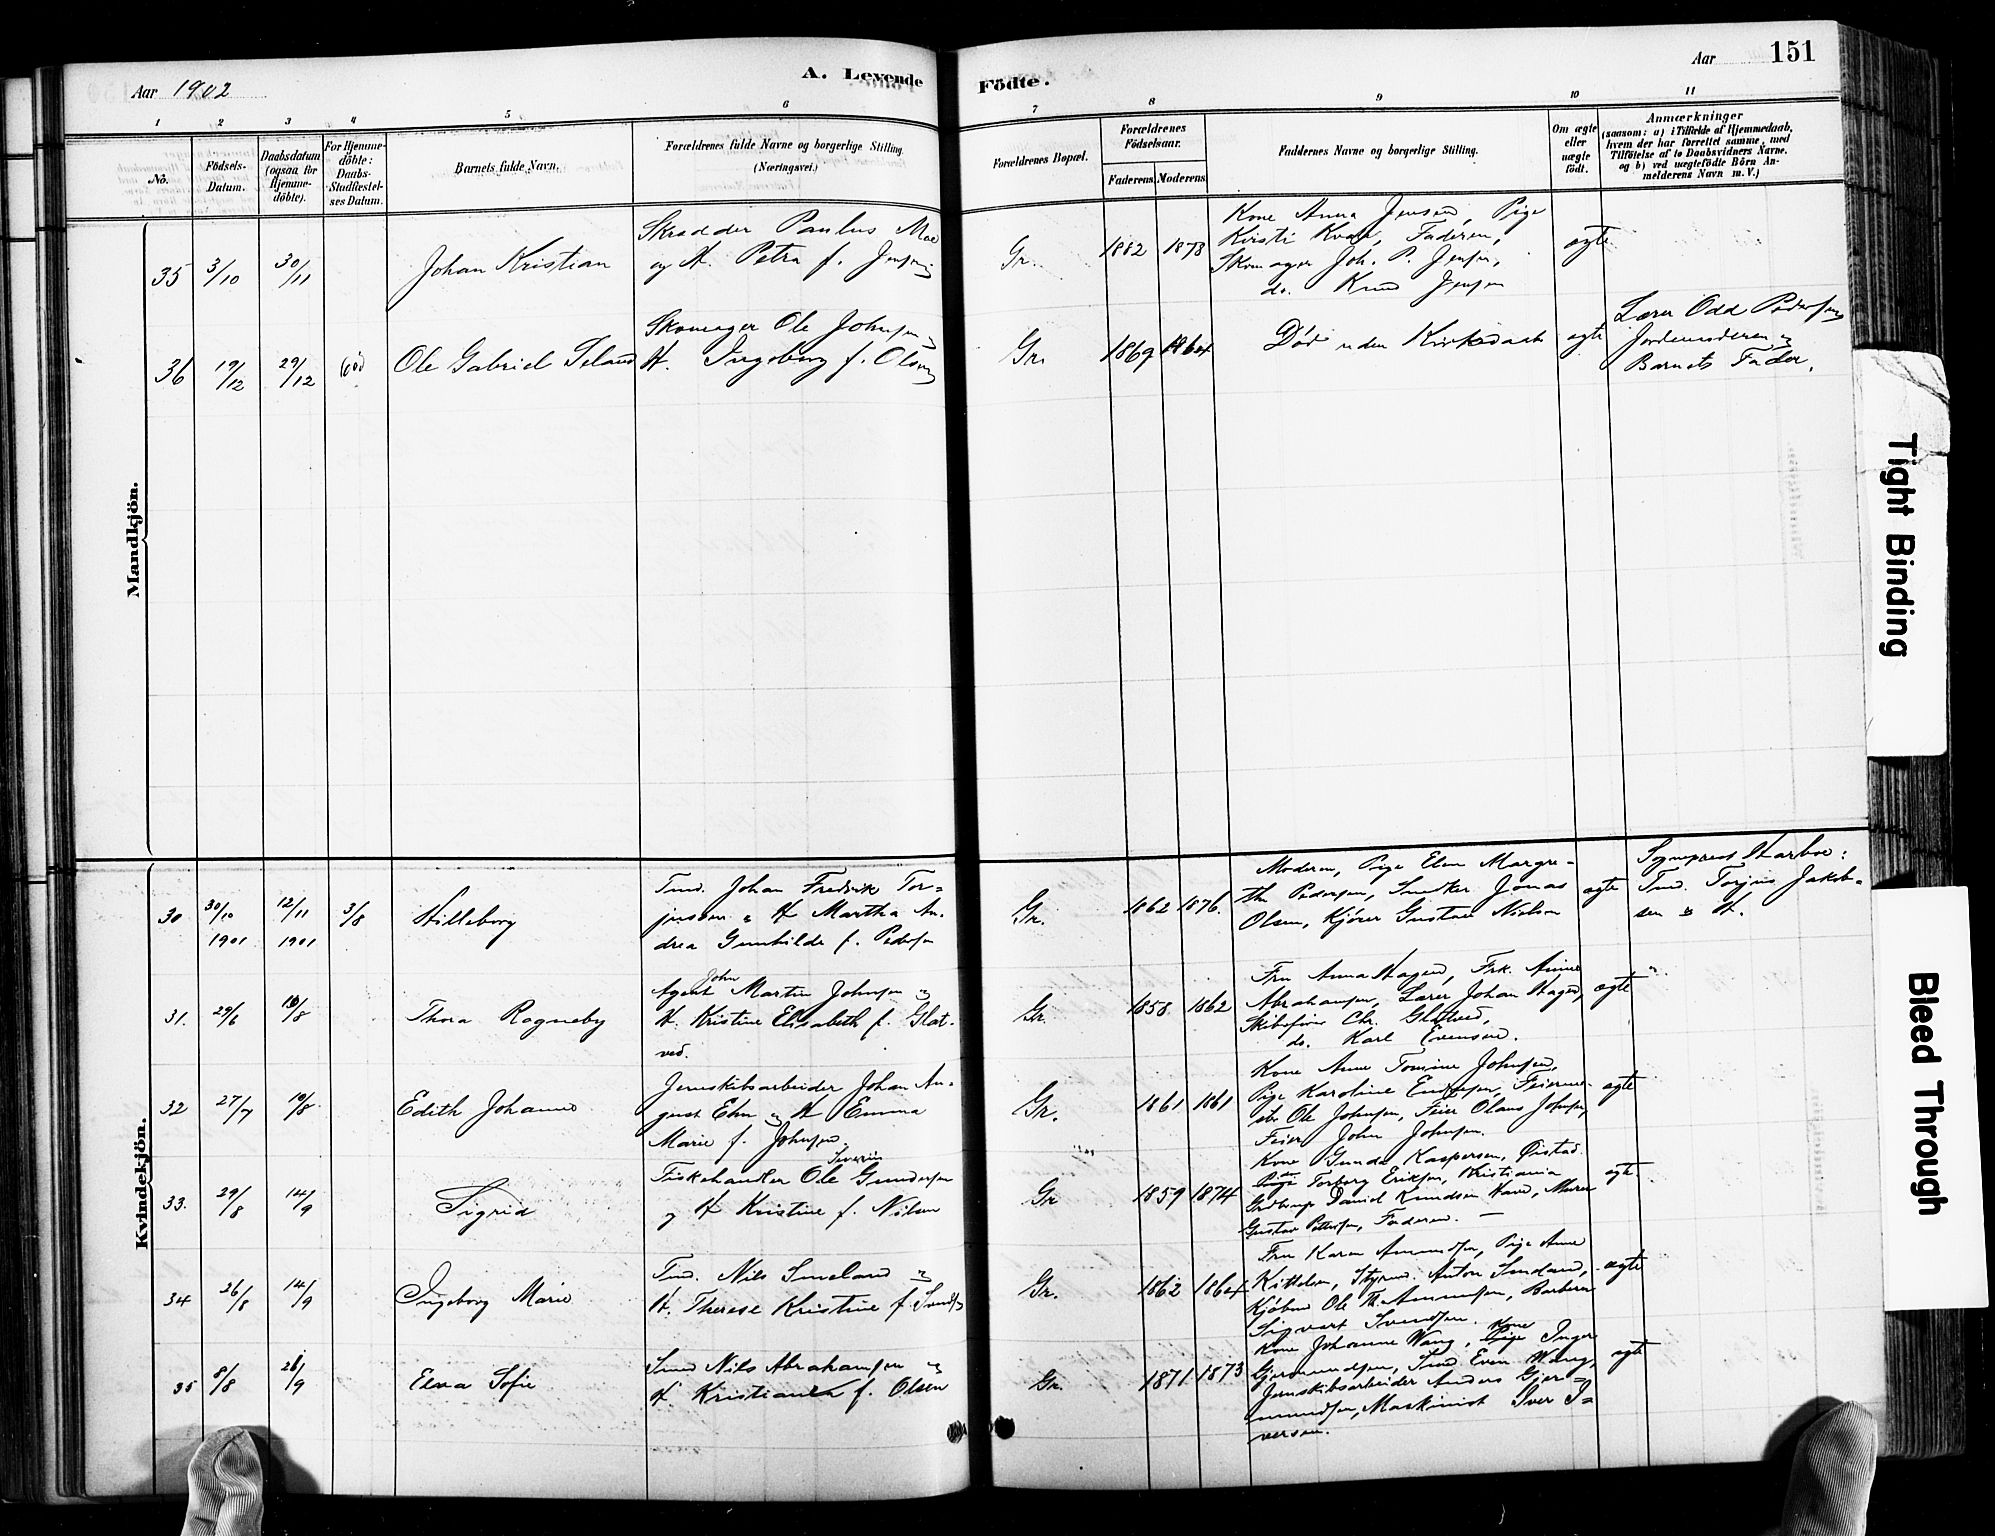 Aar 1902
A. Levende
Födte.
Aar
151
1 2 3 4 5 6 7 8 9 10 11
No.
Födsels-
Datum.
Daabsdatum
(ogsaa for
Hjemme-
döbte).
For Hjemme-
döbte:
Daabs-
Stadfæstel-
ses Datum.
Barnets fulde Navn.
Forældrenes fulde Navne og borgerlige Stilling.
(Næringsvei.)
Forældrenes Bopæl.
Forældrenes
Födselsaar.
Faderens. Moderens.
Faddernes Navne og borgerlige Stilling.
Om ægte
eller
uægte
født.
Anmærkninger
(saasom: a) i Tilfælde af Hjemmedaab,
hvem der har forrettet samme, med
Tilföielse af to Daabsvidners Navne.
og b) ved uægtefödte Börn An-
melderens Navn m. V.)
Mandkjön.
35 3/10 30/11
Johan Kristian
Skrædder Paulus Moe
og H. Petra f. Jensen
Gr.
1882 1878
Kone Anna Jensen, Pige
Kirsti Kvale, Faderen,
Skomager Joh. P. Jensen,
do. Knud Jensen
ægte
36 19/12 29/12 död
Ole Gabriel Teland
Skomager Ole Johnsen
H. Ingeborg f. Olsen
Gr.
1869 1864
Död uden Kirkedaab
ægte
Lærer Odd Pedersen
Jordemoderen
Barnets Fader.
Kvindekjön.
30 30/10 1901 12/11 1901 3/8
Hilleborg
Tmd. Johan Fredrik Tor=
jussen & H Martha An-
drea Gunhilde f. Pedersen
Gr.
1862 1876.
Moderen, Pige Elen Margre-
the Pedersen, Snedker Jonas
Olsen, Kjører Gustav Nielsen
ægte
Sogneprest Harboe:
Tmd. Torjus Jakob=
sen & H.
31. 29/6 10/8
Thora Ragneby
John
Agent Martin Johnsen &
H. Kristine Elisabeth f. Glat-
ved.
Gr.
1858 1862
Fru Anna Hagen, Frk. Anine
Abrahamsen, Lærer Johan Hagen,
Skibsfører Chr. Glatved,
do. Karl Evensen.
ægte
32 27/7 10/8
Edith Johanne
Jernskibsarbeider Johan Au-
gust Ehn & H Emma
Marie f. Johnsen.
Gr.
1861 1861
Kone Anne Tomine Johnsen,
Pige Karoline Endresen, Feierme-
ster Ole Johnsen, Feier Olaus Johnsen,
Feier John Johnsen.
ægte
33. 29/8 14/9
Sigrid
Severin
Fiskehandler Ole Gundersen
& H Kristine f. Nilsen
Gr
1859 1874
Kone Gunda Kaspersen, Øistad.
Pige Torborg Eriksen, Kristiania
Daniel Knudsen Have, Murer
Gustav Pettersen, Faderen.
ægte
34 26/8 14/9
Ingeborg Marie
Tmd. Nils Smeland &
H. Therese Kristine f. Svendsen
Gr.
1862 1864
Fru Karen Amundsen, Pige Anne
Kittelsen, Styrmd. Anton Smeland,
Kjøbmd Ole Th. Amundsen, Barberer
Sigvart Svendsen.
ægte
35 8/8 28/9
Elna Sofie
Smed Nils Abrahamsen &
H. Kristianna f. Olsen
Gr.
1871 1873
Kone Johanne Wang, Kone Inger
Gjermundsen, Smed Even Wang,
Jernskibsarbeider Anders Gjer=
mundsen, Maskinist Iver I=
versen.
ægte
Tight Binding
Bleed Through